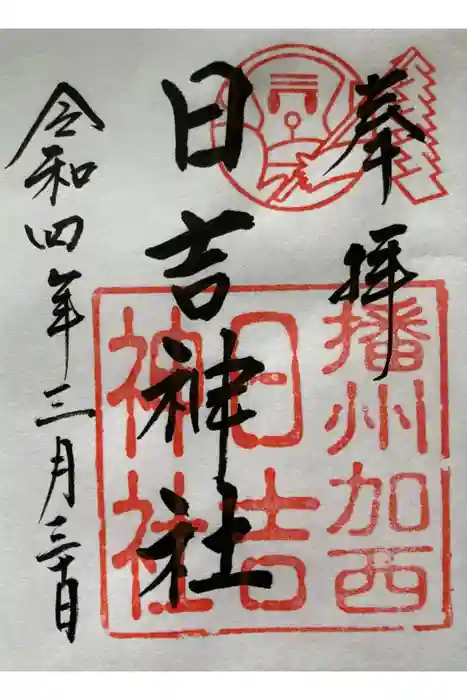 奉拝
日吉神社
令和四年三月三十日
播州加西
日吉
神社